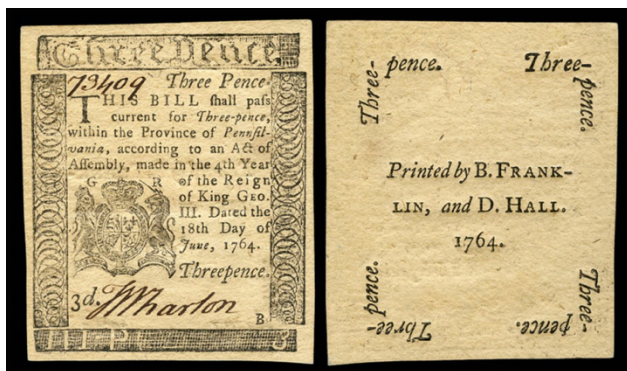 Three Pence
73409 Three Pence.
THIS BILL shall pass
current for Three-pence,
within the Province of Pennsil-
vania, according to an Act of
Assembly, made in the 4th Year
G R of the Reign
of King GEO.
III. Dated the
18th Day of
June, 1764.
Threepence.
3d. Wharton
B
Three-pence.
Three-pence.
Printed by B. FRANK-
LIN, and D. HALL.
1764.
Three-pence.
Three-pence.